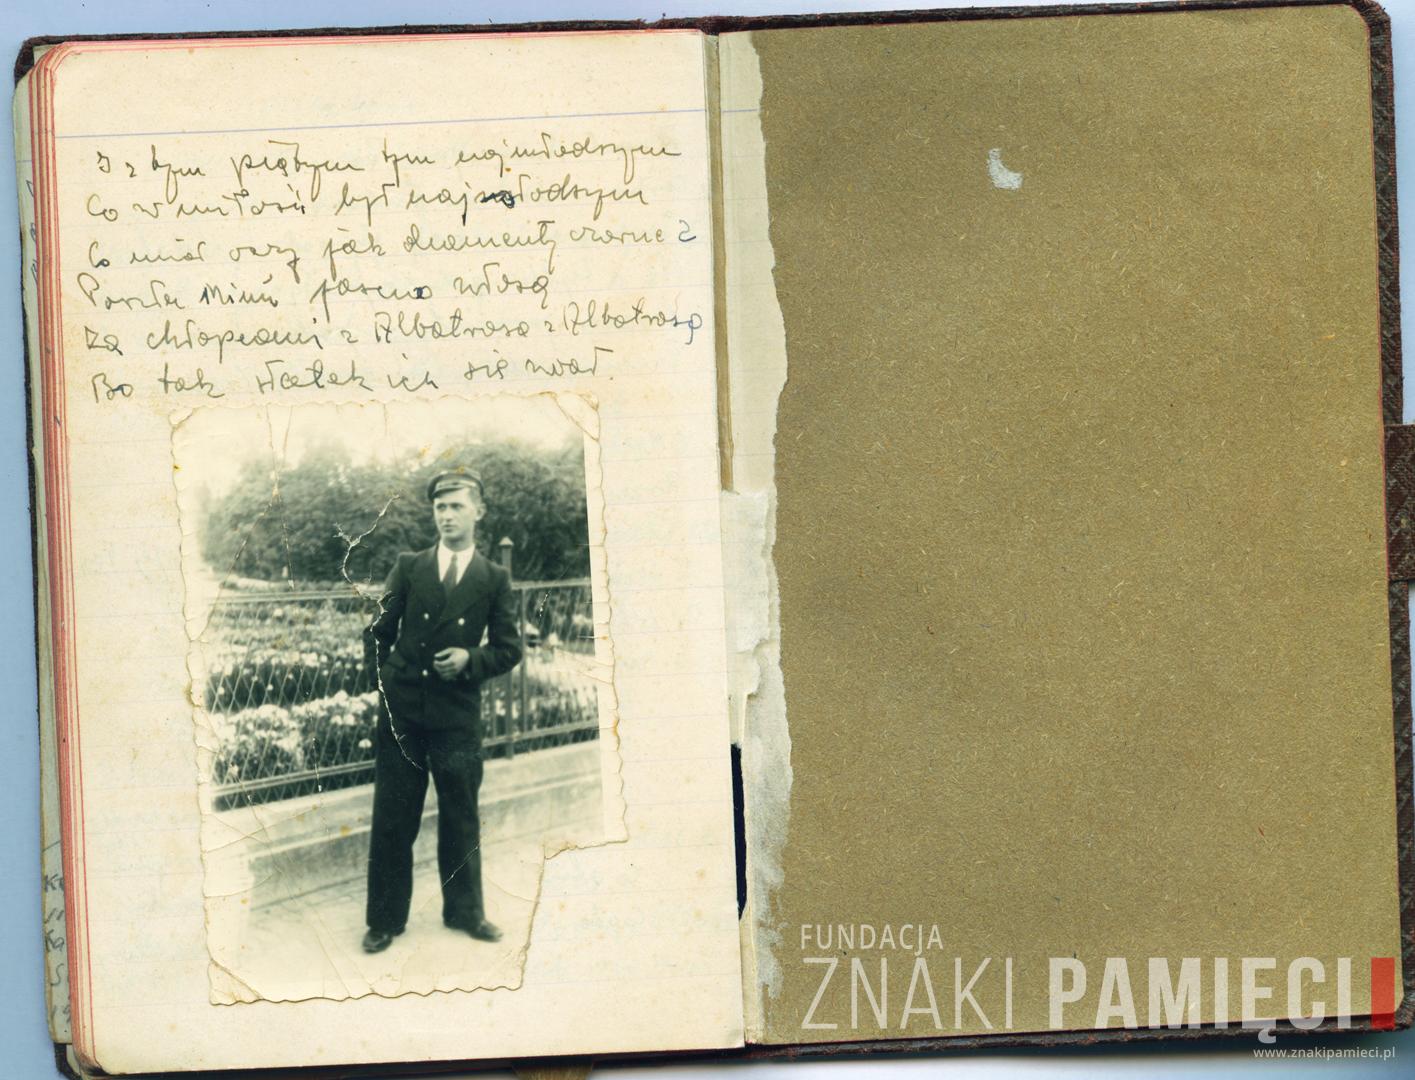 I z tym piątym tym najmłodszym
Co w miłości był najmłodszym
Co miał oczy jak diamenty czarne 2
Poszła Mimi jasno włosą
Za chłopcami z Albatrosa z Albatrosa
Bo tak statek ich się zwał.
FUNDACJA
ZNAKI PAMIĘCI
www.znakipamieci.pl